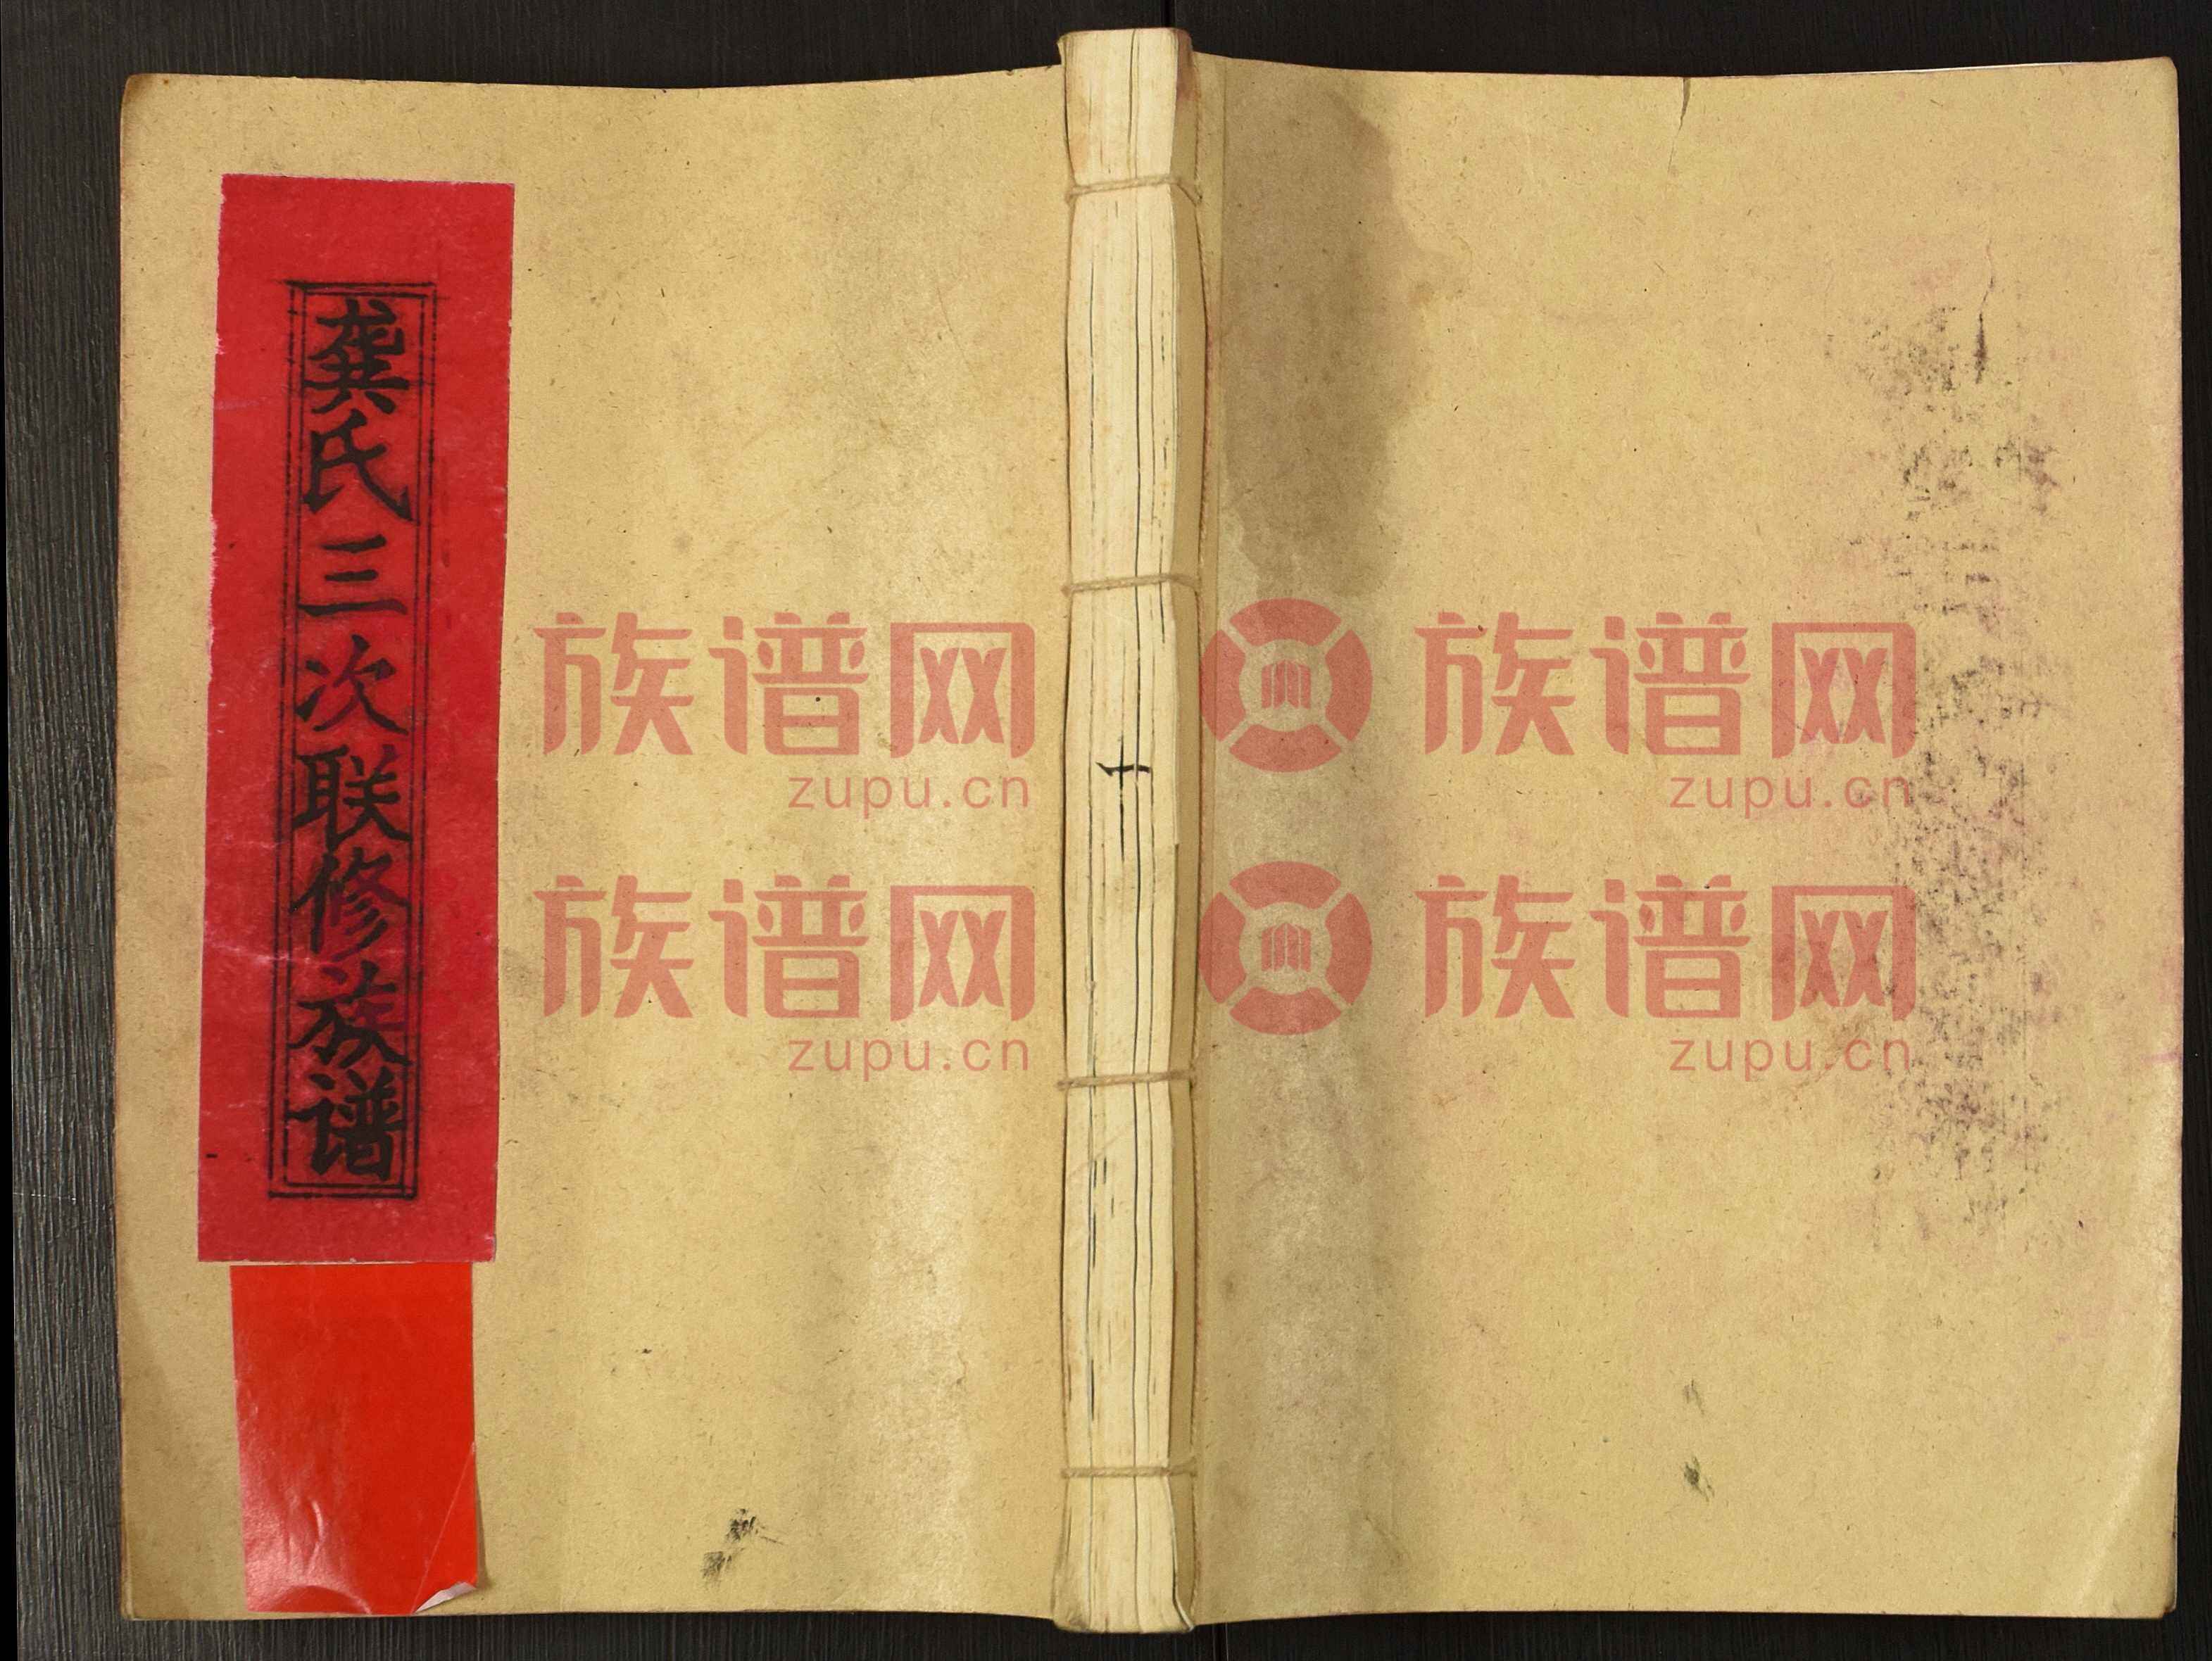 龚氏三次联修族谱
十
族谱网
zupu.cn
族谱网
zupu.cn
族谱网
zupu.cn
族谱网
zupu.cn